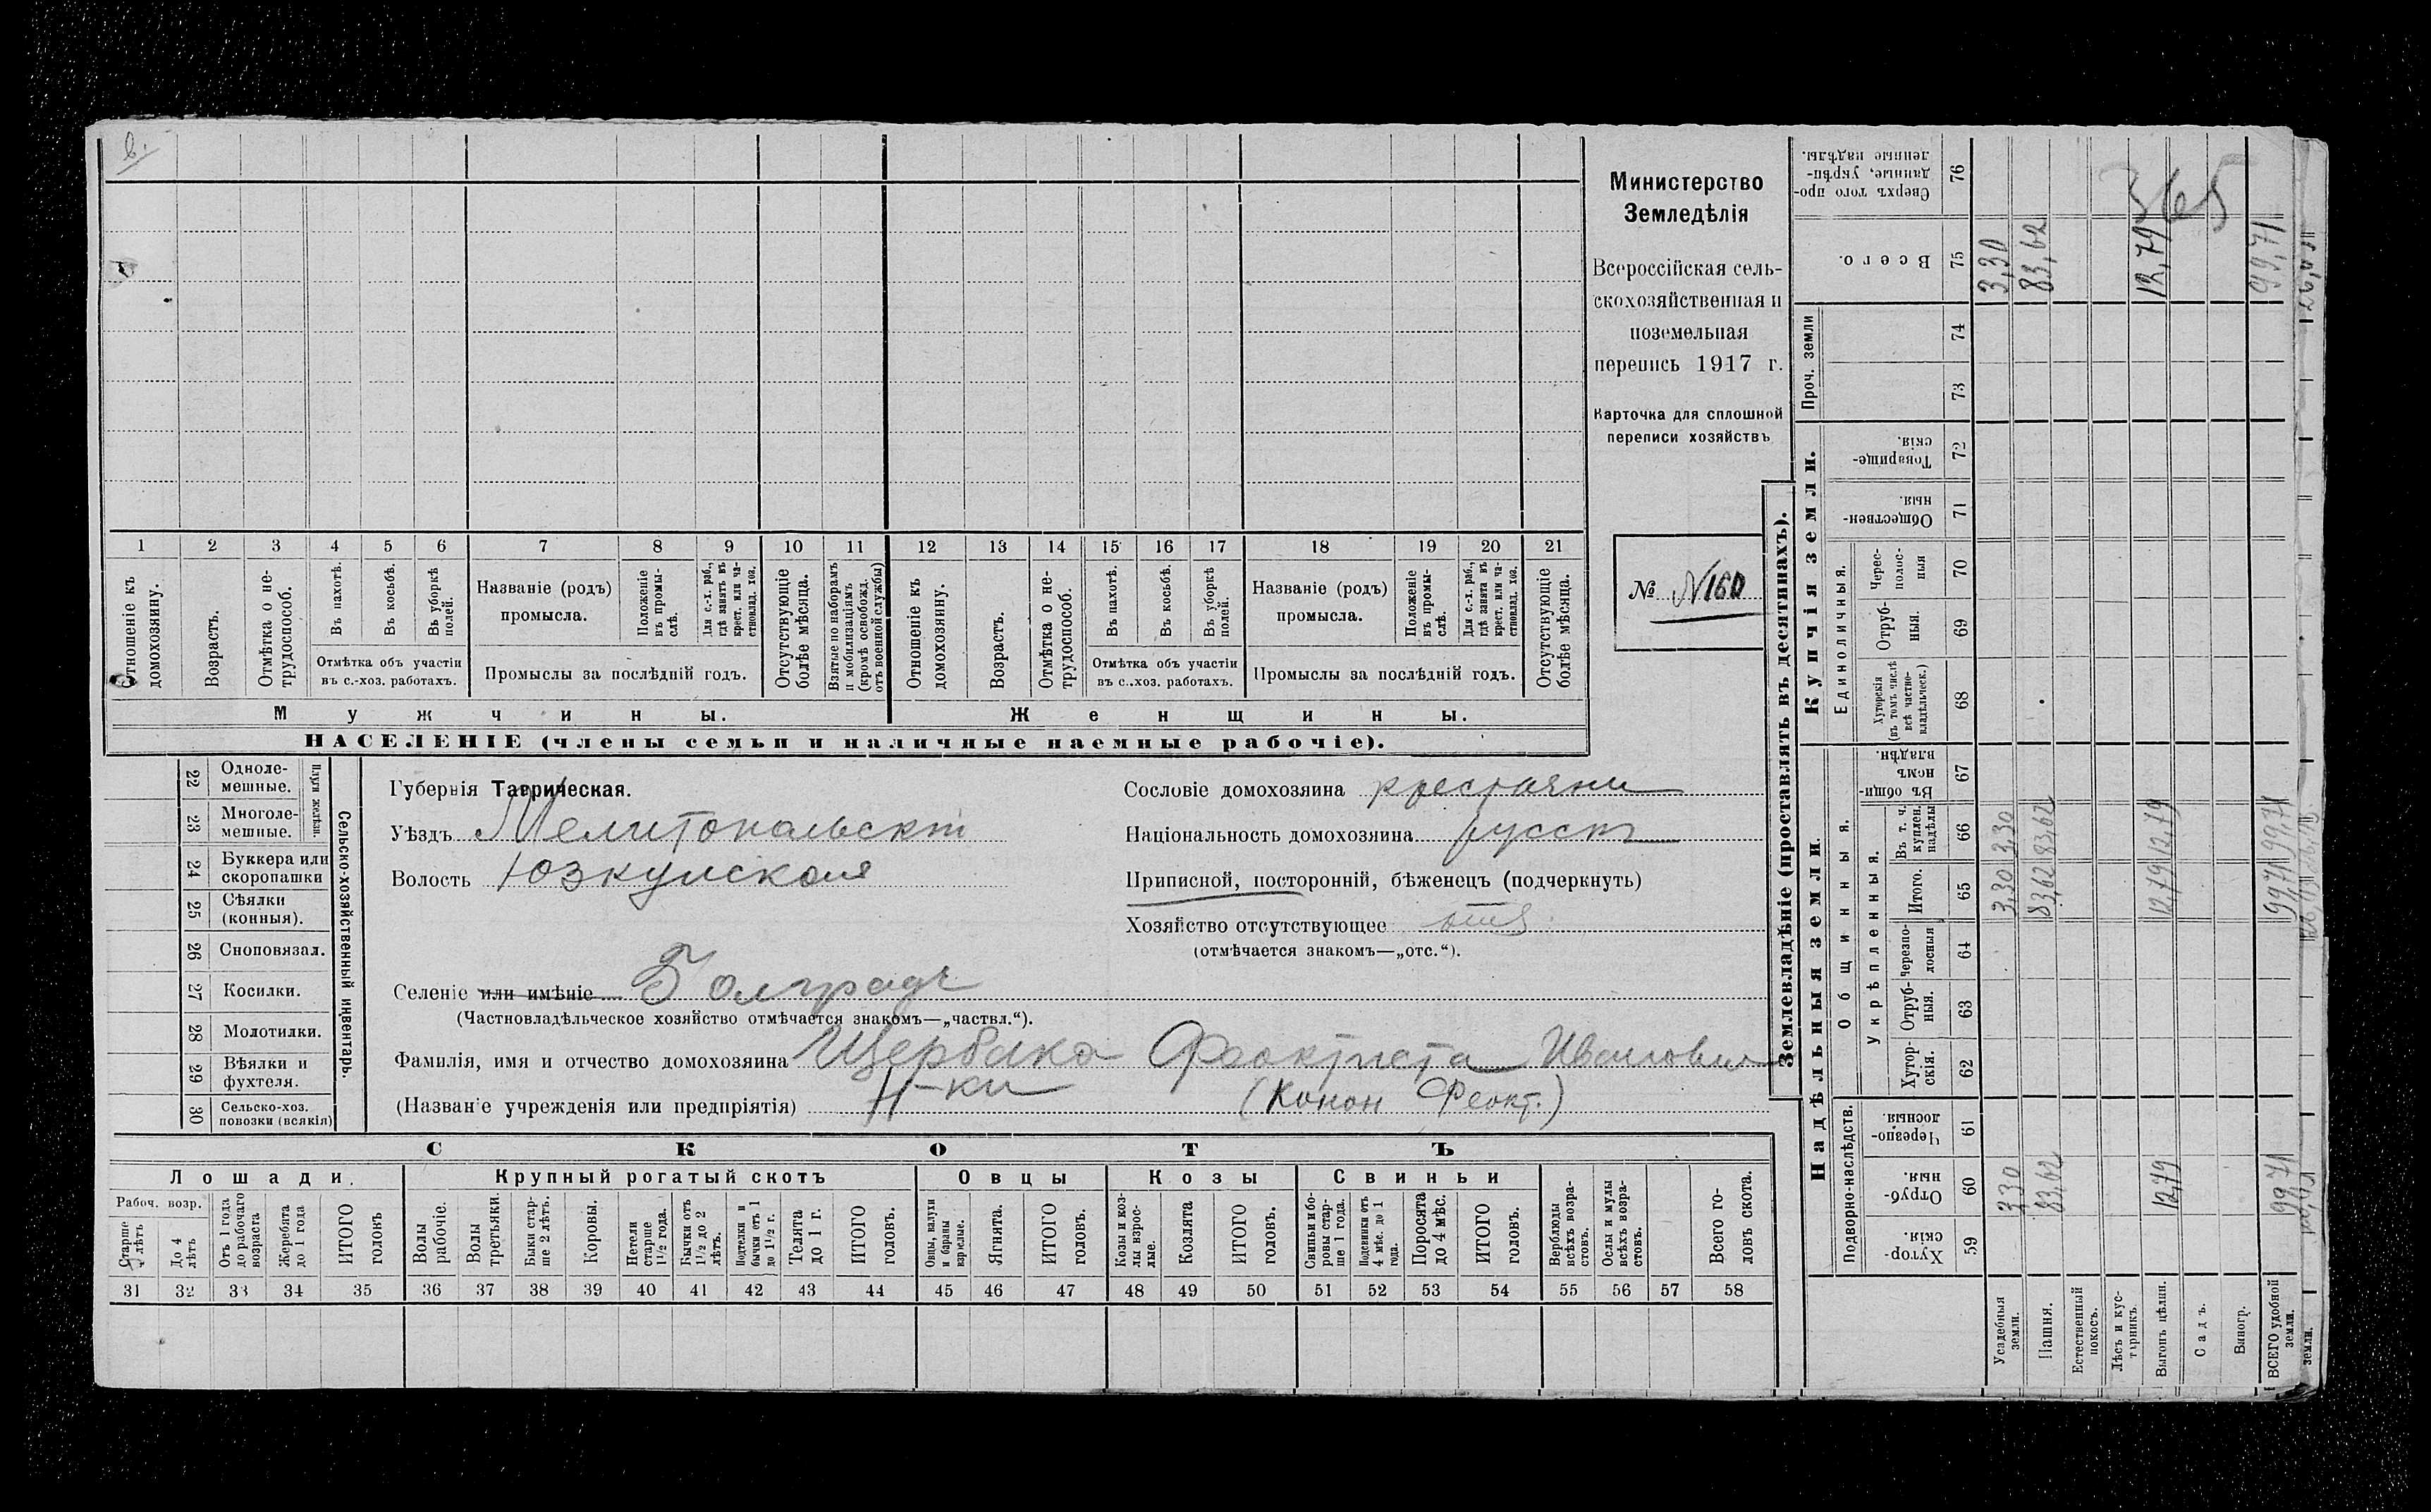 в.
1 2 3 4 5 6 7 8 9 10 11 12 13 14 15 16 17 18 19 20 21
Отношеніе къ домохозяину.
Возрастъ.
Отмѣтка о не-трудоспособ.
Въ пахотѣ.
Въ косьбѣ.
Въ уборкѣ полей.
Отмѣтка объ участіи
въ с.-хоз. работахъ.
Названіе (родъ)
промысла.
Положеніе въ промы-слѣ.
Для с.-х. раб., гдѣ занятъ въ крест. или ча-стновлад. хоз.
Промыслы за послѣдній годъ.
Отсутствующіе болѣе мѣсяца.
Взятые по наборамъ и мобилизаціямъ (кромѣ освобожд. отъ военной службы)
Отношеніе къ домохозяину.
Возрастъ.
Отмѣтка о не-трудоспособ.
Въ пахотѣ.
Въ косьбѣ.
Въ уборкѣ полей.
Отмѣтка объ участіи
въ с.-хоз. работахъ.
Названіе (родъ)
промысла.
Положеніе въ промы-слѣ.
Для с.-х. раб., гдѣ занятъ въ крест. или ча-стновлад. хоз.
Промыслы за послѣдній годъ.
Отсутствующіе болѣе мѣсяца.
Мужчины.
Женщины.
НАСЕЛЕНІЕ (члены семьи и наличные наемные рабочіе).
Министерство
Земледѣлія
Всероссійская сель-
скохозяйственная и
поземельная
перепись 1917 г.
Карточка для сплошной
переписи хозяйствъ
№ N160
22 Одноле-мешные.
23 Многоле-мешные.
Плуги желѣзн.
24 Буккера или скоропашки
25 Сѣялки (конныя).
26 Сноповязал.
27 Косилки.
28 Молотилки.
29 Вѣялки и фухтеля.
30 Сельско-хоз. повозки (всякія)
Сельско-хозяйственный инвентарь.
Губернія Таврическая.
Уѣздъ Мелитопольскій
Волость Юзкуйская
Сословіе домохозяина крестьяни
Національность домохозяина русск
Приписной, посторонній, бѣженецъ (подчеркнуть)
Хозяйство отсутствующее
(отмѣчается знакомъ—„отс.“).
Селеніе или имѣніе Болградъ
(Частновладѣльческое хозяйство отмѣчается знакомъ—„частвл.“).
Фамилія, имя и отчество домохозяина Щербака Феоктиста Иванович
Н-ки
(Названіе учрежденія или предпріятія) (Конон Феокт.)
СКОТЪ
Лошади.
Крупный рогатый скотъ
Овцы
Козы
Свиньи
Рабоч. возр.
Старше лѣтъ
До 4 лѣтъ
Отъ 1 года до рабочаго возраста
Жеребята до 1 года
ИТОГО головъ
Волы рабочіе.
Волы третьяки.
Быки стар-ше 2 лѣтъ.
Коровы.
Нетели старше 1½ года.
Бычки отъ 1½ до 2 лѣтъ.
Подтелки и бычки отъ 1 до 1½ г.
Телята до 1 г.
ИТОГО головъ.
Овцы, валухи и бараны взрослые.
Ягнята.
ИТОГО головъ.
Козы и коз-лы взрос-лые.
Козлята
ИТОГО головъ.
Свиньи и бо-ровы стар-ше 1 года.
Подсвинки отъ 4 мѣс. до 1 года.
Поросята до 4 мѣс.
ИТОГО головъ.
Верблюды всѣхъ возра-стовъ.
Ослы и мулы всѣхъ возра-стовъ.
Всего го-ловъ скота.
31 32 33 34 35 36 37 38 39 40 41 42 43 44 45 46 47 48 49 50 51 52 53 54 55 56 57 58
Землевладѣніе (проставлять въ десятинахъ).
Надѣльныя земли.
Купчія земли.
Проч. земли
Подворно-наслѣдств.
Общинныя.
Укрѣпленныя.
Единоличныя.
Хутор-скія. 59
Отруб-ныя. 60
Черезпо-лосныя. 61
Хутор-скія. 62
Отруб-ныя. 63
Черезпо-лосныя 64
Итого. 65
Въ т. ч. куплен. надѣлы 66
Въ общи-номъ владѣн. 67
Хуторскія (въ томъ числѣ всѣ частно-владѣльческ.) 68
Отруб-ныя. 69
Черес-полос-ныя 70
Обществен-ныя. 71
Товарище-скія. 72
73
74
Всего. 75
Сверхъ того про-данные, укрѣп-ленные надѣлы. 76
Усадебныя земли. 3,30 3,30 3,30 3,30
Пашня. 83,62 83,62 83,62 83,62
Естественный покосъ.
Лѣсъ и кус-тарникъ.
Выгонъ цѣлин. 12,79 12,79 12,79 12,79
Садъ.
Виногр.
ВСЕГО удобной земли. 99,71 99,71 99,71 99,71
земли.
565